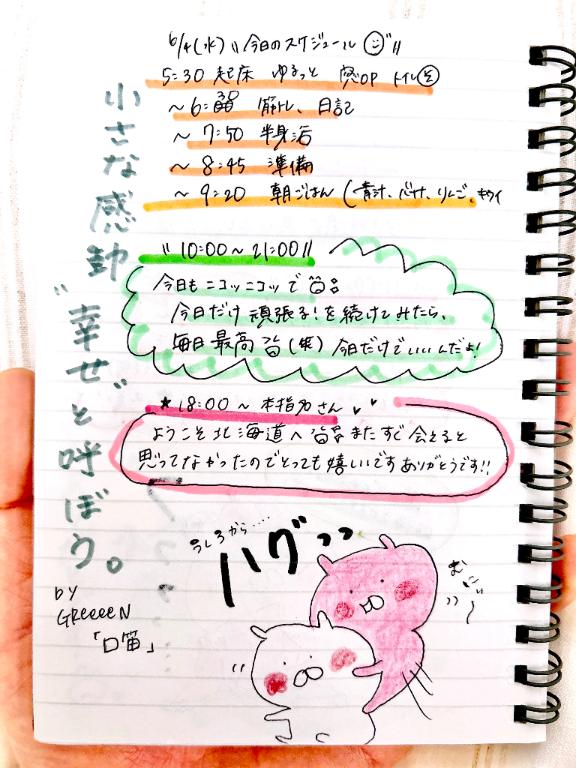 6/4(水) "今日のスケジュール"
5:30 起床 ゆるっと 窓OP トイレ
〜6:30 筋トレ、日記
〜7:50 半身浴
〜8:45 準備
〜9:20 朝ごはん(青汁、バナナ、りんご、キウイ
"10:00〜21:00"
今日もニコッニコッで
今日だけ頑張る!を続けてみたら、
毎日最高(笑)今日だけでいいんだよ!
★18:00〜本指名さん
ようこそ北海道へ またすぐ会えると
思ってなかったのでとっても嬉しいです ありがとうです!!
小さな感謝
"幸せ"と呼ぼう。
by
GReeeeN
「口笛」
うしろから……
ハグッッ
むにぃ〜